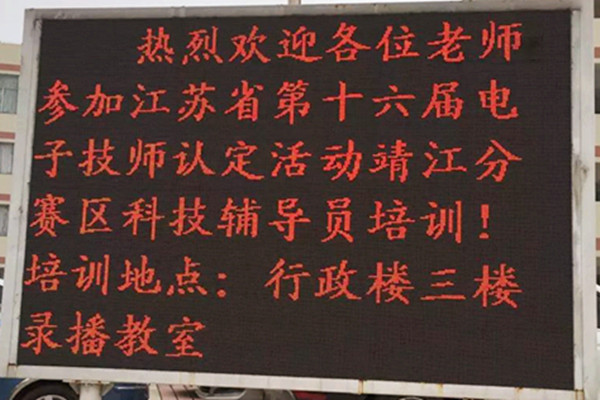 热烈欢迎各位老师
参加江苏省第十六届电
子技师认定活动靖江分
赛区科技辅导员培训！
培训地点：行政楼三楼
录播教室